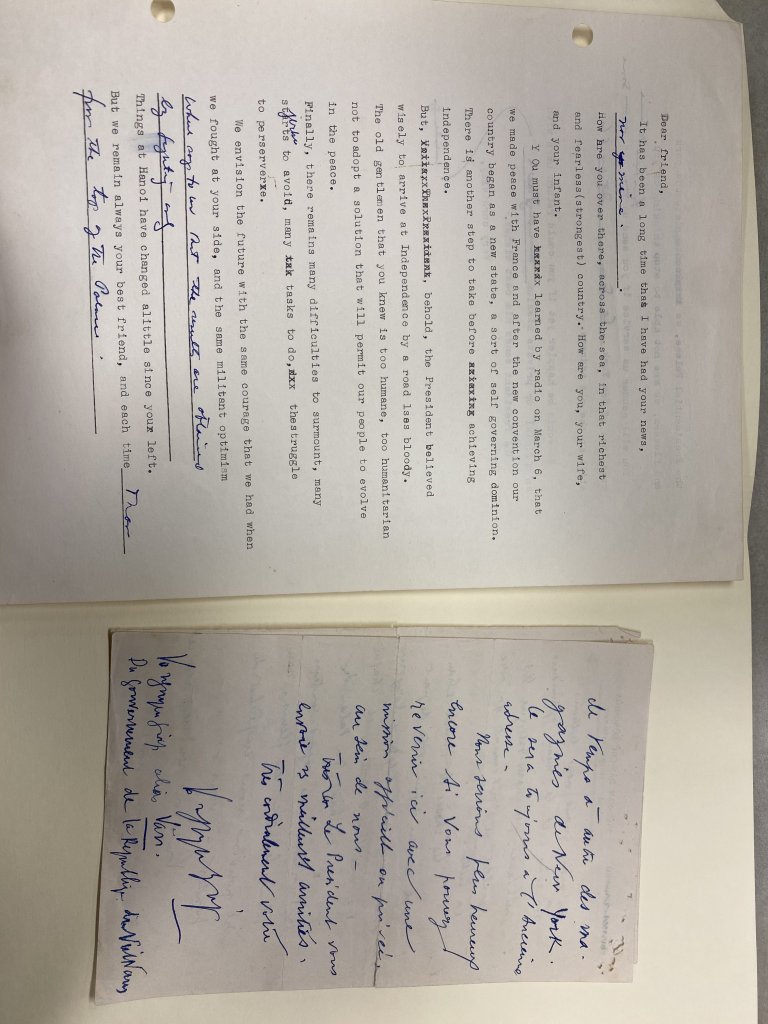 Dear friend,
It has been a long time that I have had your news,
nor you mine.
How are you over there, across the sea, in that richest
and fearless(strongest) country. How are you, your wife,
and your infant.
Y Ou must have learned by radio on March 6, that
we made peace with France and after the new convention our
country began as a new state, a sort of self governing dominion.
There is another step to take before achieving
independence.
But, behold, the President believed
wisely to arrive at Independence by a road lses bloody.
The old gentlemen that you knew is too humane, too humanitarian
not to adopt a solution that will permit our people to evolve
in the peace.
Finally, there remains many difficulties to surmount, many
to avoid, many tasks to do, thestruggle
to perserverxe.
We envision the future with the same courage that we had when
we fought at your side, and the same militant optimism
which says to us that the results are obtained
by fighting only
Things at Hanoi have changed alittle since your left.
But we remain always your best friend, and each time
from the top of the
de temps à autre des ma-
gazines de New York.
Ce sera toujours à l'ancienne
adresse.
Nous serions plus heureux
encore si vous pouvez
revenir ici avec une
mission officielle ou privée,
au sein de nous-
Le Président vous
envoie ses meilleures amitiés.
Très cordialement votre
Vo nguyen giap alias Van.
Du Gouvernement de la République du Viet Nam